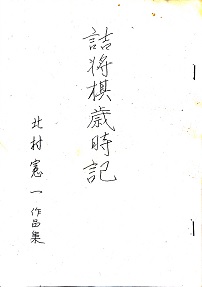 詰将棋歳時記
北村憲一作品集